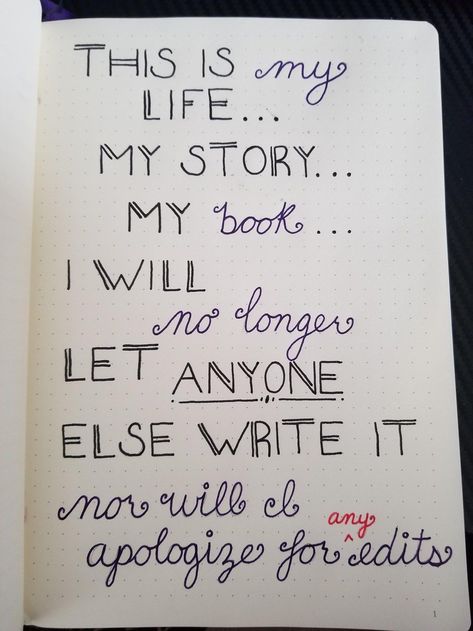 THIS IS my
LIFE...
MY STORY...
MY book...
I WILL
no longer
LET ANYONE
ELSE WRITE IT
nor will I
any
apologize for ^ edits
1